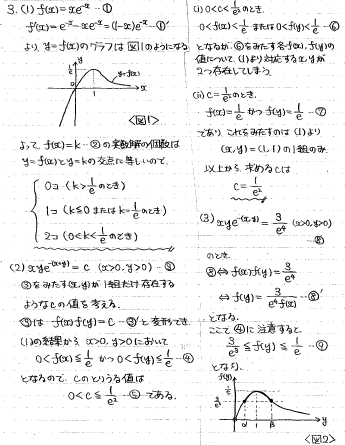 3.(1) f(x)=xe^{-x} …①
f'(x)=e^{-x}-xe^{-x}=(1-x)e^{-x} …①'
より y=f(x)のグラフは図1のようになる
y
1/e
y=f(x)
1
x
<図1>
よって、f(x)=k …②の実数解の個数は
y=f(x)とy=kの交点に等しいので、
0コ (k>1/eのとき)
1コ (k≦0 または k=1/eのとき)
2コ (0<k<1/eのとき)
(2) xye^{-(x+y)}=c (x>0,y>0) …③
③をみたす(x,y)が1組だけ存在する
ようなcの値を考える。
③は f(x)f(y)=c …③'と変形でき
(1)の結果から x>0,y>0において
0<f(x)≦1/e かつ 0<f(y)≦1/e …④
となるので、cのとりうる値は
0<c≦1/e^2 …⑤ である。
(i) 0<c<1/e^2のとき、
0<f(x)<1/e または 0<f(y)<1/e …⑥
となるが、⑥をみたす各f(x),f(y)の
値について、(1)より対応するx,yが
2つ存在してしまう。
(ii) c=1/e^2のとき、
f(x)=1/e かつ f(y)=1/e …⑦
であり、これをみたすのは(1)より
(x,y)=(1,1)の1組のみ。
以上から、求めるcは
c=1/e^2
(3) xye^{-(x+y)}=3/e^4 (x>0,y>0)
…⑧
のとき、
⑧⇔f(x)f(y)=3/e^4
⇔f(y)=3/(e^4f(x)) …⑧'
となる。
ここで④に注意すると
3/e^3≦f(y)≦1/e …⑨
となり、
f(y)
1/e
3/e^3
0
α
1
β
y
<図2>